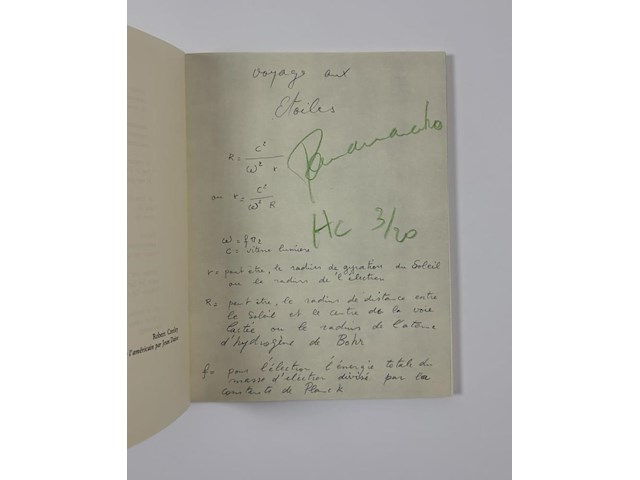 Voyage aux
Etoiles
R = c² / ω² r
ou r = c² / ω² R
HC 3/20
ω = fπ2
c = vitesse lumière
r = peut être, le radius de gyrations du Soleil
ou le radius de l'électron
R = peut être, le radius de distance entre
le Soleil et le centre de la voie
lactée ou le radius de l'atome
d'hydrogène de Bohr
f = pour l'électron, l'énergie totale du
masse d'électron divisé par la
constante de Planck
Robert Creeley
l'américain par Jean Daive